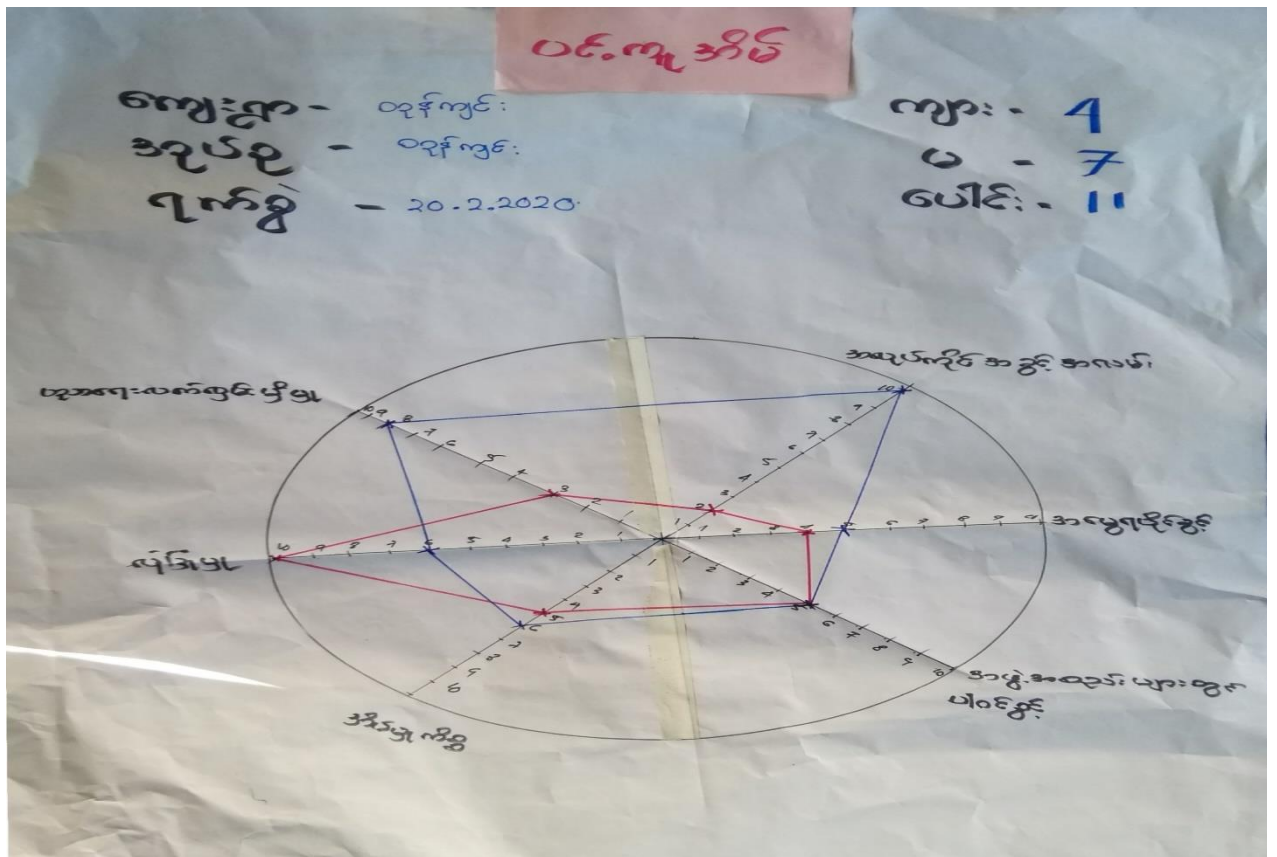 ပင့်ကူအိမ်
ကျေးရွာ - ဝဉန်ကျင်း
အုပ်စု - ဝဉန်ကျင်း
ရက်စွဲ - 20.2.2020
ကျား - 4
မ - 7
ပေါင်း - 11
အလုပ်ကိုင် အခွင့် အလမ်း
ပညာရေးလက်လှမ်းမှီမှု
အမွေရပိုင်ခွင့်
လုံခြုံမှု
အဖွဲ့အစည်းများတွင်
ပါဝင်ခွင့်
အိမ်မှုကိစ္စ